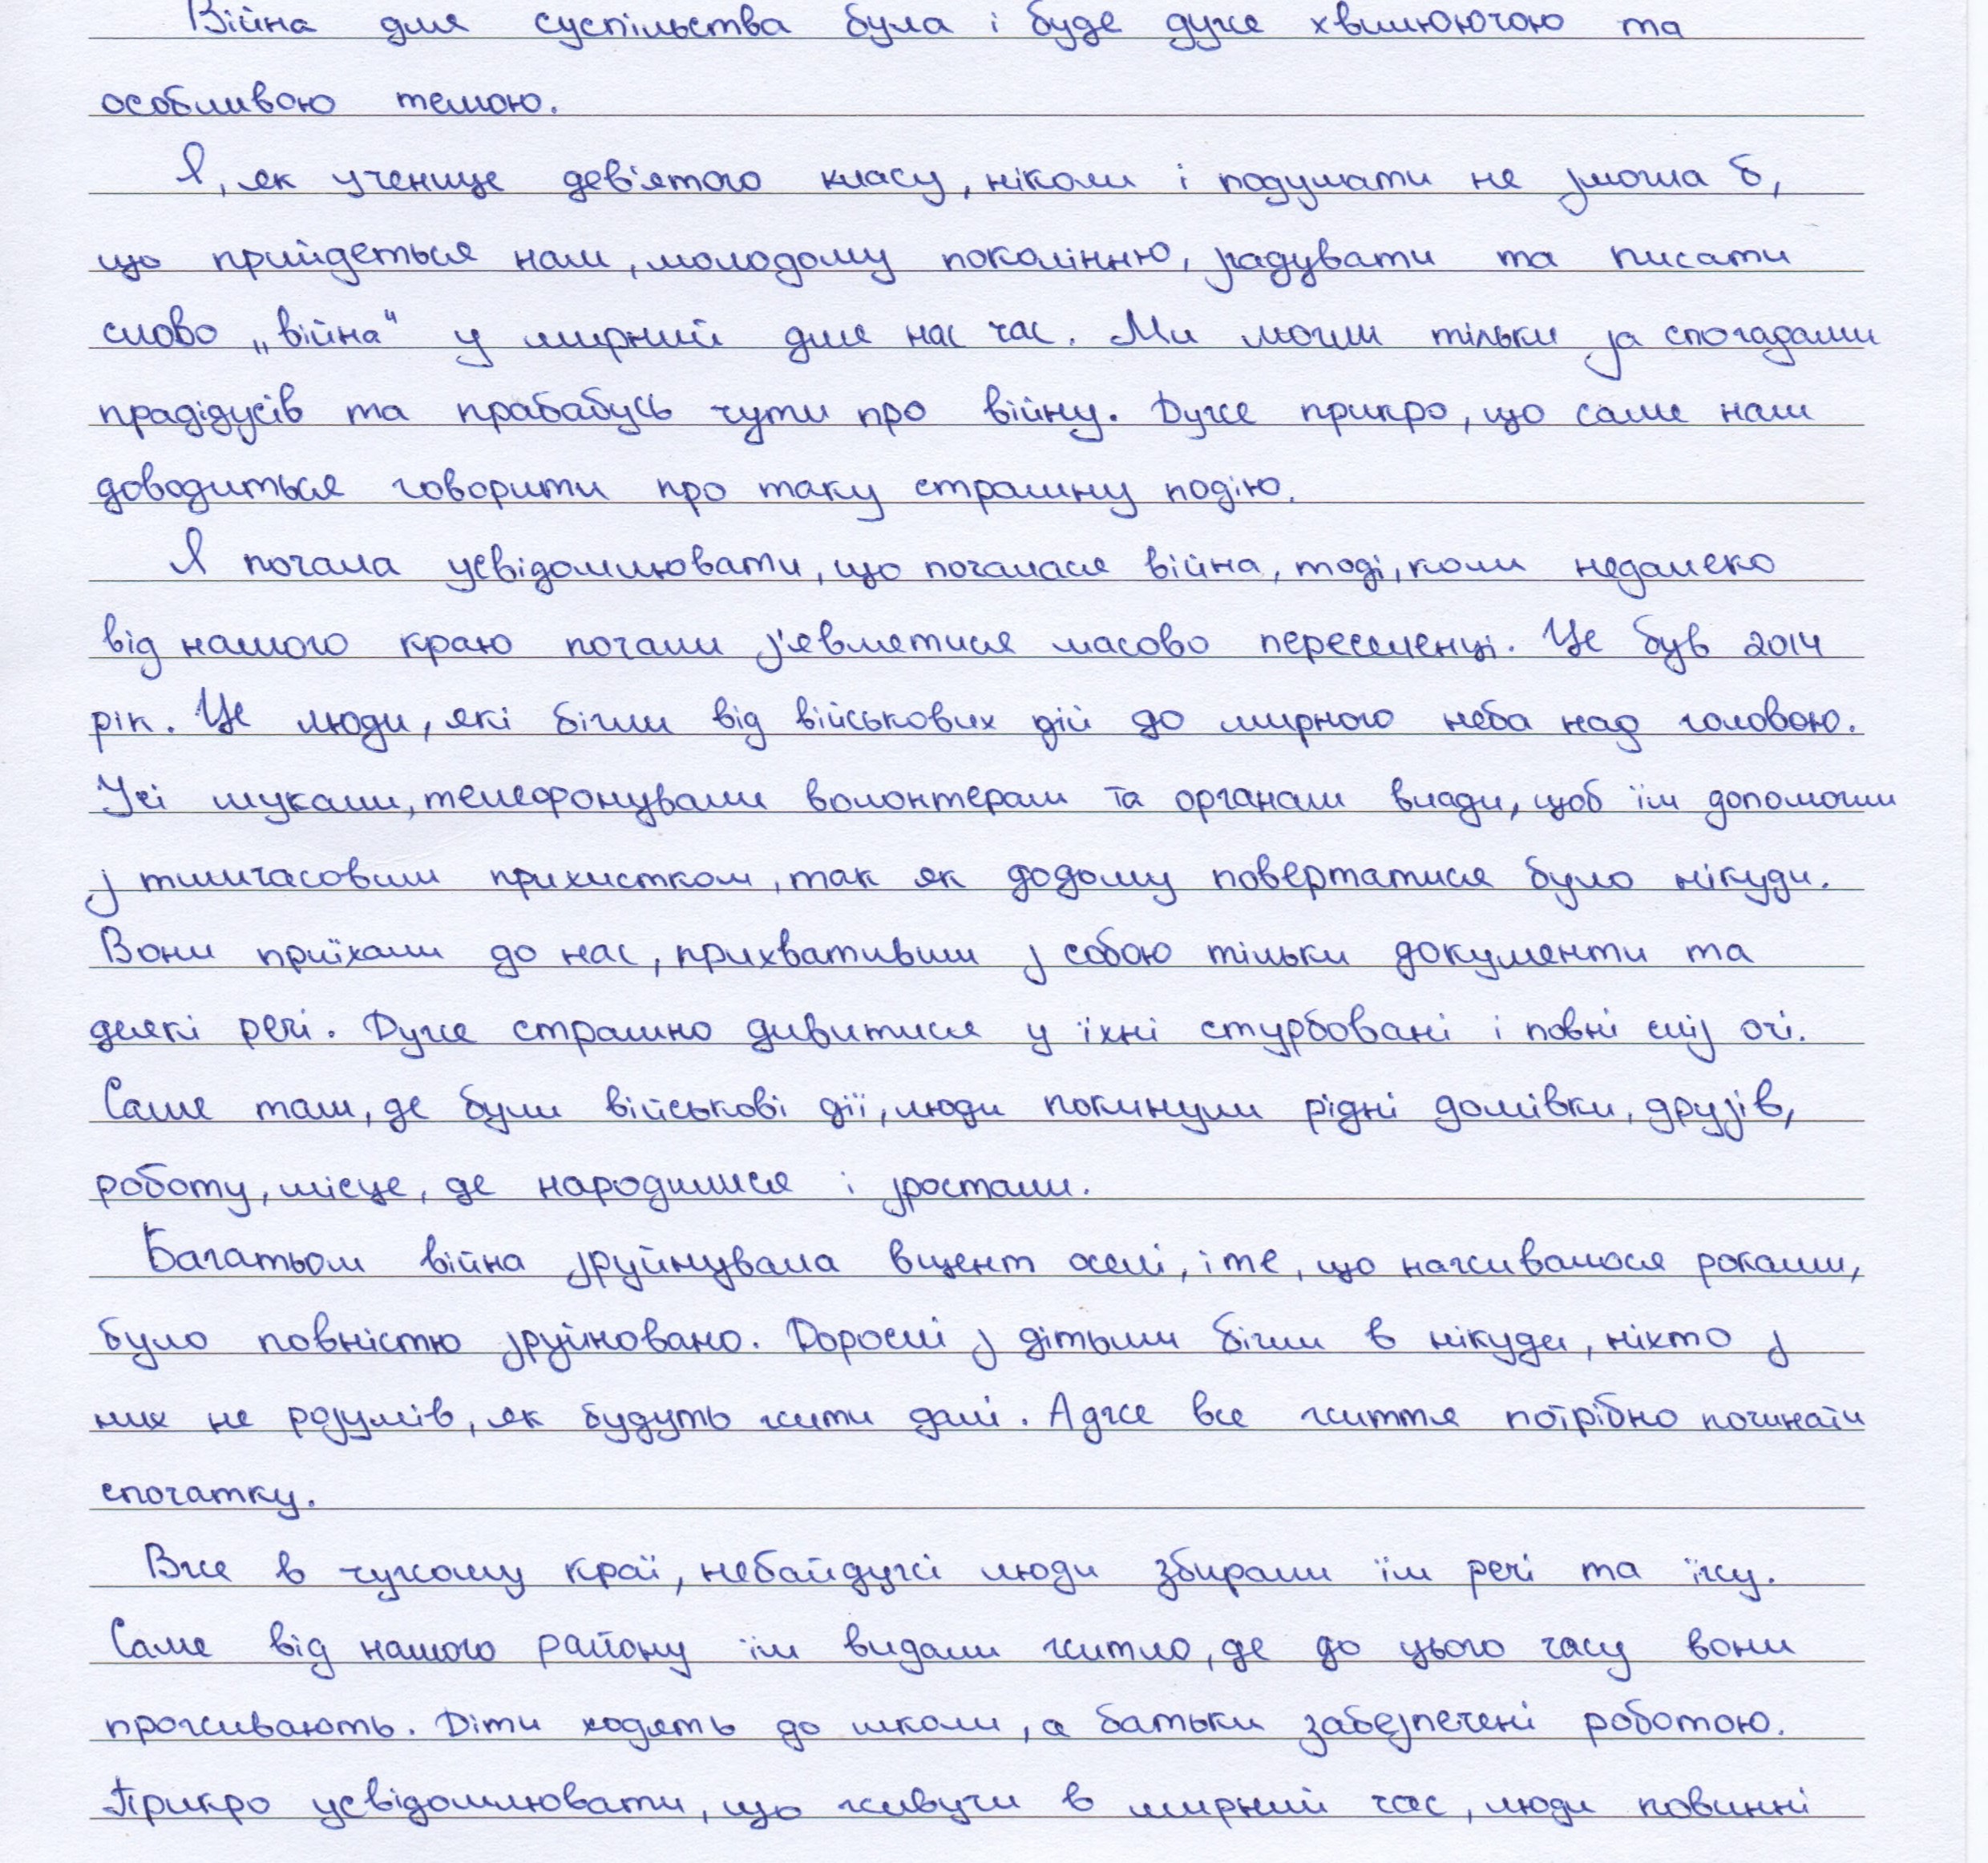 Війна для суспільства була і буде дуже хвилюючою та
особливою темою.
Я, як учениця дев'ятого класу, ніколи і подумати не змогла б,
що прийдеться нам, молодому поколінню, згадувати та писати
слово „війна“ у мирний для нас час. Ми могли тільки за спогадами
прадідусів та прабабусь чути про війну. Дуже прикро, що саме нам
доводиться говорити про таку страшну подію.
Я почала усвідомлювати, що почалася війна, тоді, коли недалеко
від нашого краю почали з'являтися масово переселенці. Це був 2014
рік. Це люди, які бігли від військових дій до мирного неба над головою.
Усі шукали, телефонували волонтерам та органам влади, щоб їм допомогли
з тимчасовим прихистком, так як додому повертатися було нікуди.
Вони приїхали до нас, прихвативши з собою тільки документи та
деякі речі. Дуже страшно дивитися у їхні стурбовані і повні сліз очі.
Саме там, де були військові дії, люди покинули рідні домівки, друзів,
роботу, місце, де народилися і зростали.
Багатьом війна зруйнувала вщент оселі, і те, що наживалося роками,
було повністю зруйновано. Дорослі з дітьми бігли в нікуди, ніхто з
них не розумів, як будуть жити далі. Адже все життя потрібно починати
спочатку.
Вже в чужому краї, небайдужі люди збирали їм речі та їжу.
Саме від нашого району їм видали житло, де до цього часу вони
проживають. Діти ходять до школи, а батьки забезпечені роботою.
Прикро усвідомлювати, що живучи в мирний час, люди повинні